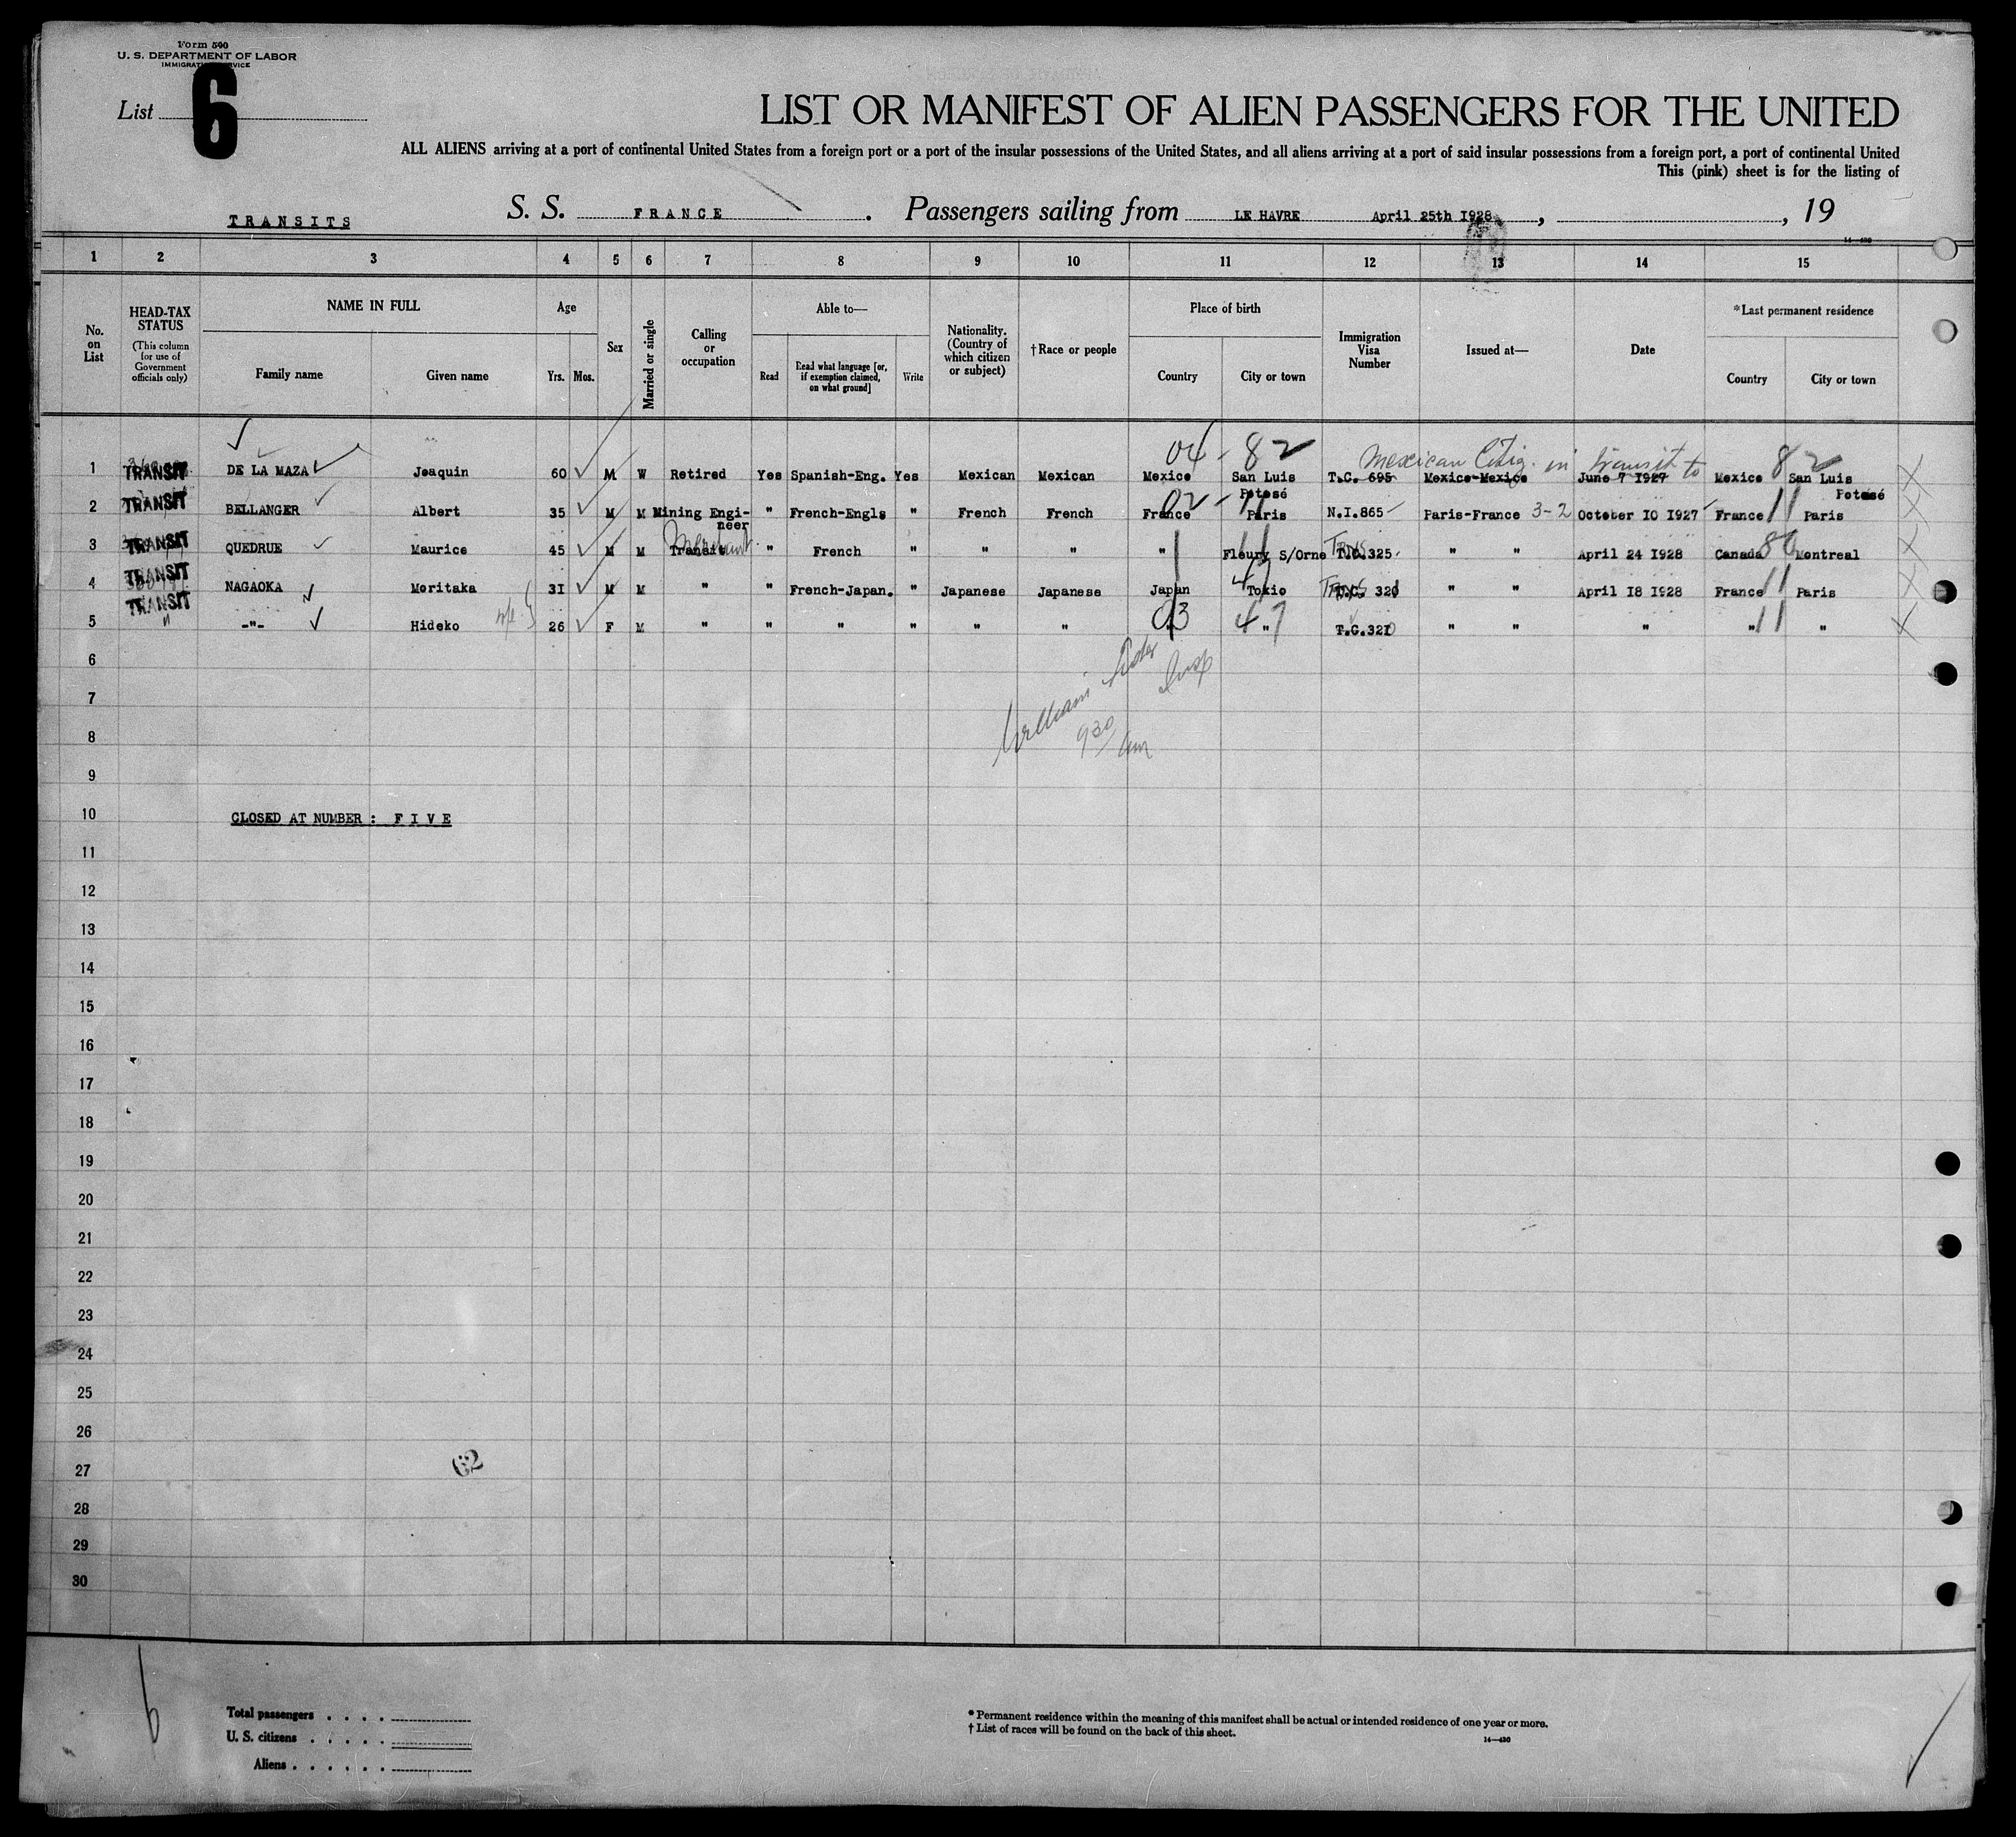 Form 500
U. S. DEPARTMENT OF LABOR
IMMIGRATION SERVICE
List 6
LIST OR MANIFEST OF ALIEN PASSENGERS FOR THE UNITED
ALL ALIENS arriving at a port of continental United States from a foreign port or a port of the insular possessions of the United States, and all aliens arriving at a port of said insular possessions from a foreign port, a port of continental United
This (pink) sheet is for the listing of
TRANSITS S. S. FRANCE . Passengers sailing from LE HAVRE April 25th 1928 , , 19
14—430
1 2 3 4 5 6 7 8 9 10 11 12 13 14 15
No. on List
HEAD-TAX STATUS (This column for use of Government officials only)
NAME IN FULL
Family name Given name
Age
Yrs. Mos.
Sex
Married or single
Calling or occupation
Able to—
Read Read what language [or, if exemption claimed, on what ground] Write
Nationality. (Country of which citizen or subject)
†Race or people
Place of birth
Country City or town
Immigration Visa Number
Issued at—
Date
*Last permanent residence
Country City or town
04 - 82 Mexican Citiz. in transit to 82
1 TRANSIT DE LA MAZA Joaquin 60 M W Retired Yes Spanish-Eng. Yes Mexican Mexican Mexico San Luis Potosé T.C. 695 Mexico-Mexico June 7 1927 Mexico San Luis Potosé
02 - 11
2 TRANSIT BELLANGER Albert 35 M M Mining Engineer " French-Engls " French French France Paris N.I.865 Paris-France 3-2 October 10 1927 France 11 Paris
Merchant
3 TRANSIT QUEDRUE Maurice 45 M M Transit " French " " " " Fleury S/Orne T.C.325 " " April 24 1928 Canada 80 Montreal
4 TRANSIT NAGAOKA Moritaka 31 M M " " French-Japan. " Japanese Japanese Japan 47 Tokio T.C. 320 " " April 18 1928 France 11 Paris
5 TRANSIT " -"- Hideko wife 26 F M " " " " " " " 03 47 " T.C.321 " " " " 11 "
6
William Insp
7
8 930 am
9
10 CLOSED AT NUMBER : FIVE
11
12
13
14
15
16
17
18
19
20
21
22
23
24
25
26
27 62
28
29
30
6
Total passengers . . . .
U. S. citizens . . . . .
Aliens . . . . . .
* Permanent residence within the meaning of this manifest shall be actual or intended residence of one year or more.
† List of races will be found on the back of this sheet.
14—430